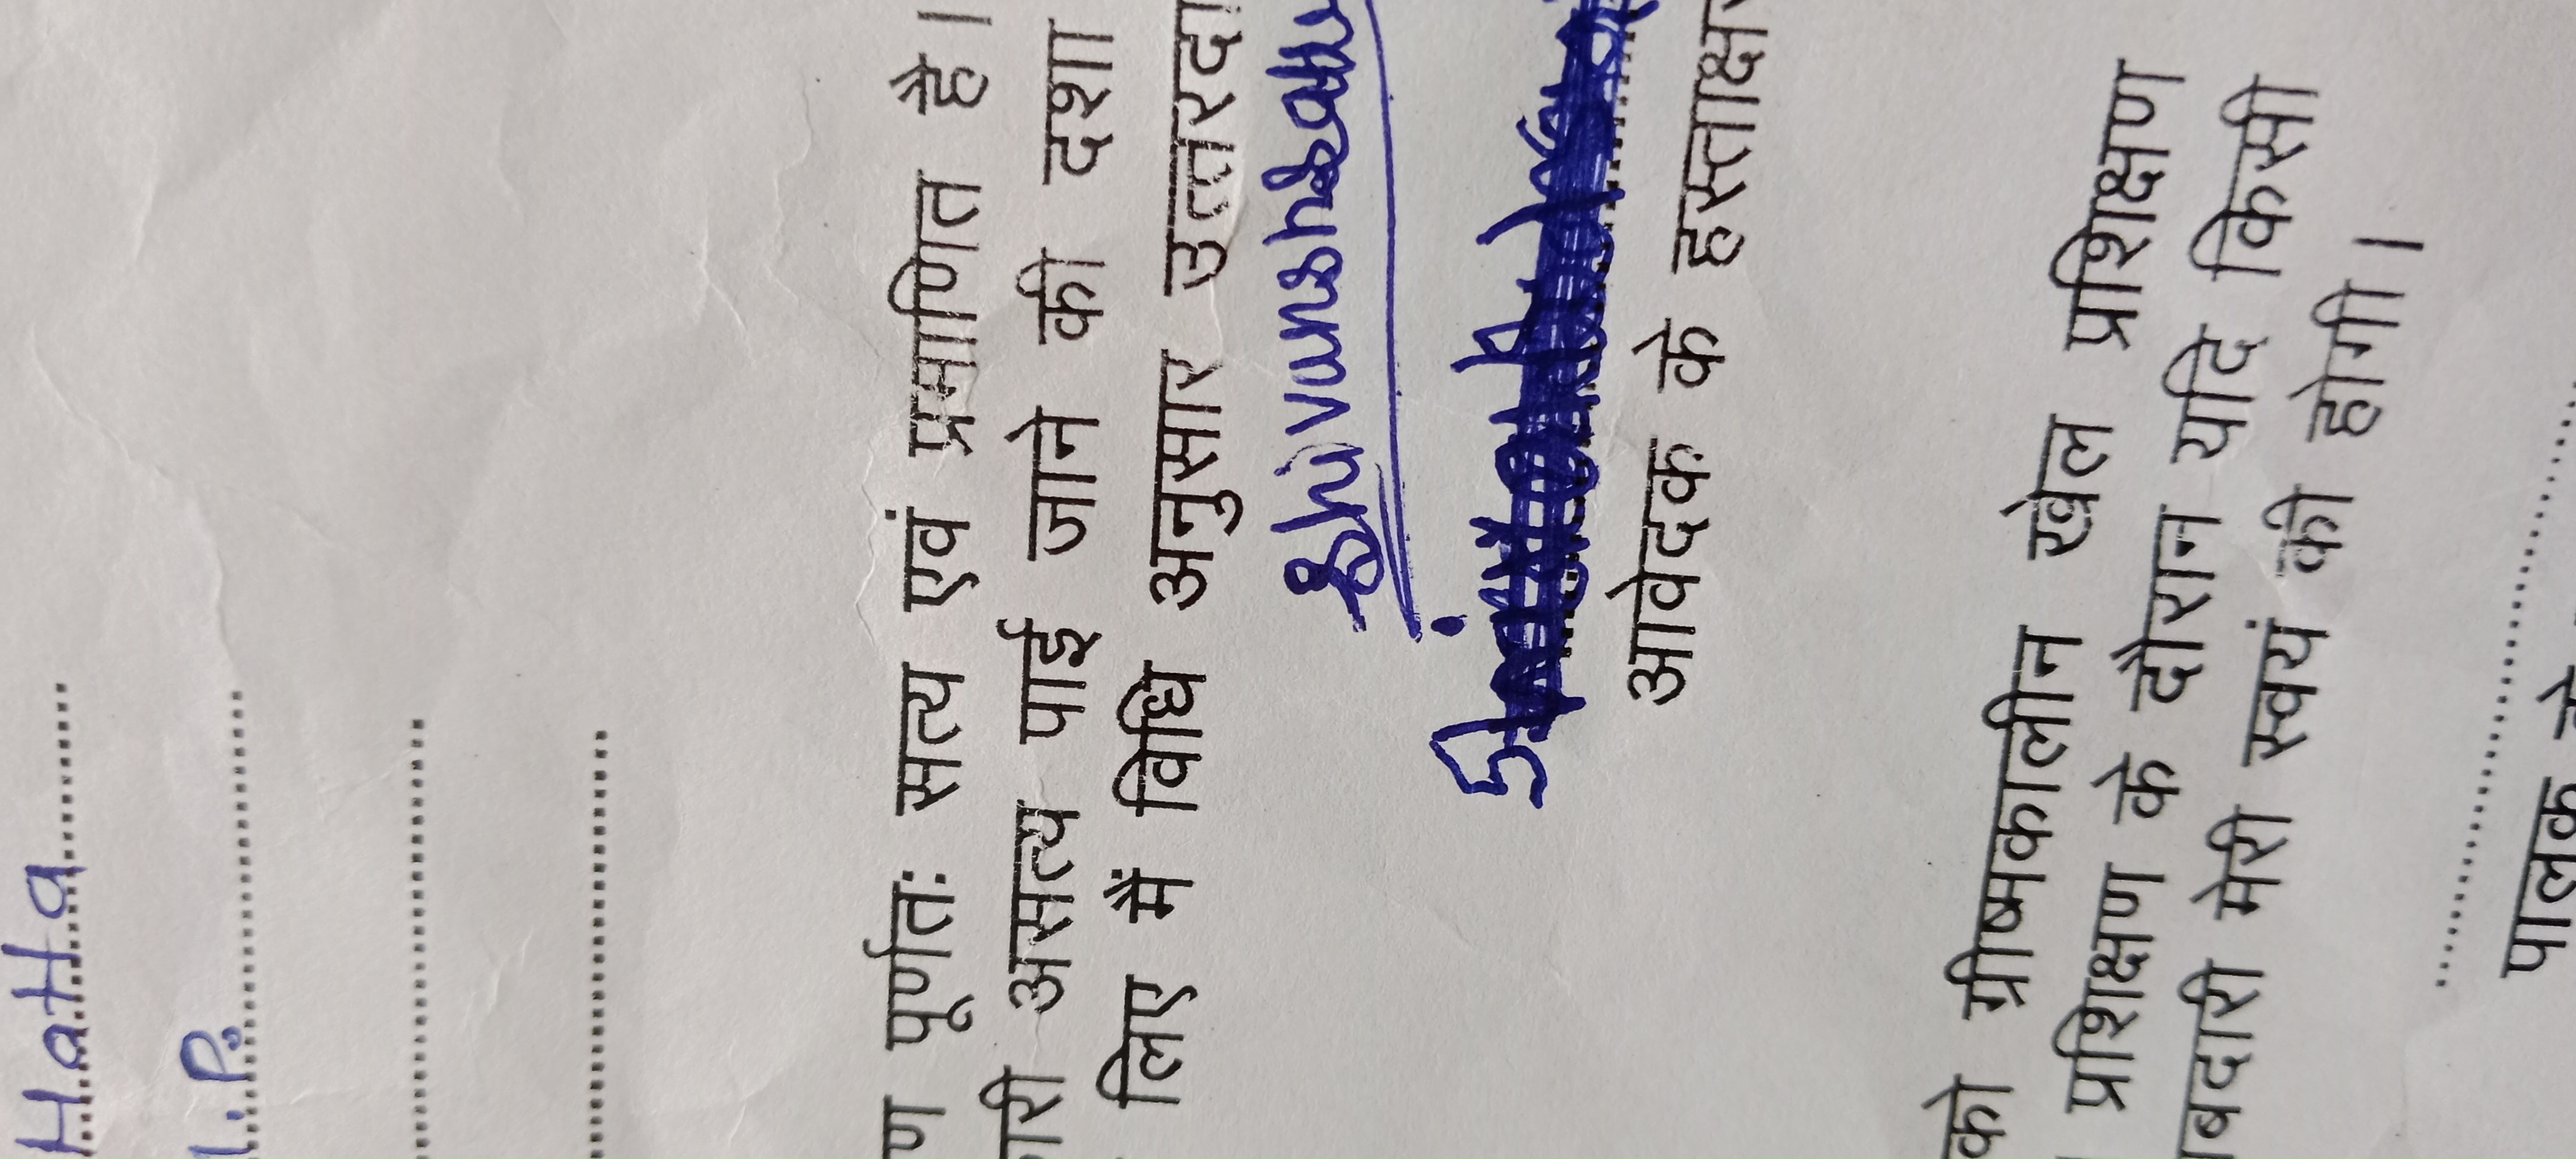 HaHa
.P.
पूर्णतः सत्य एवं प्रमाणित है।
असत्य पाई जाने की दशा
लिए मैं विधि अनुसार उत्तरदा
आवेदक के हस्ताक्षर
को ग्रीष्मकालीन खेल प्रशिक्षण
प्रशिक्षण के दौरान यदि किसी
मेरी स्वयं की होगी।
पालक